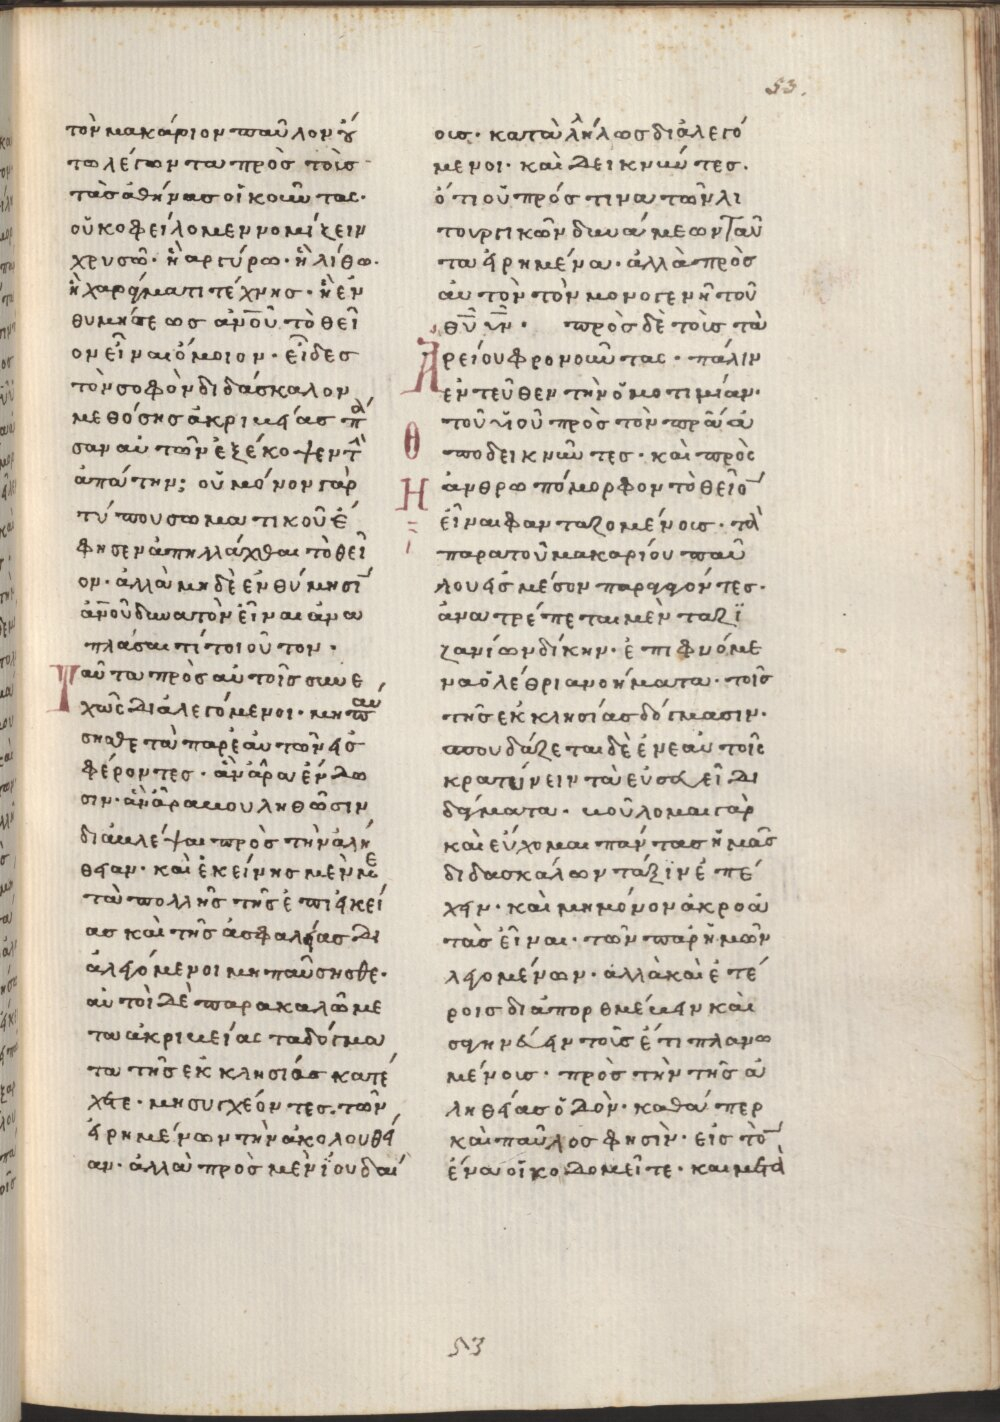 53.
τὸν μακάριον παῦλον ὅυ
τω λέγοντα πρὸς τοὺς
τὰς ἀθήνας οἰκοῦντας·
οὐκ ὀφείλομεν νομίζειν
χρυσῶ· ἢ ἀργύρω· ἢ λίθω·
ἢ χαράγματι τέχνης· ἢ ἐν
θυμήσεως ἀν̅ο̅υ̅ τὸ θεῖ
ον εἶναι ὅμοιον· εἶδες
τὸν σοφὸν διδάσκαλον
μεθόσης ἀκριβείας πᾶ
σαν αὐτῶν ἐξέκοψεν τὴν
ἀπάτην; οὐ μόνον γὰρ
τύπου σωματικοῦ ἔ
φησεν ἀπηλλάχθαι τὸ θεῖ
ον· ἀλλὰ μηδὲ ἐνθύμησιν
ἀν̅ο̅υ̅ δυνατὸν εἶναι ἀνα
πλάσαι τί τοιοῦτον·
Ταῦτα πρὸς αὐτοῖς συνε
χῶς διαλεγόμενοι· μὴ παύ
σησθε τὰ παρ' ἑαυτῶν εἰσ
φέροντες· ἂν ἄρα ἐνδῶ
σιν· ἂν ἄρα βουληθῶσιν
διαβλέψαι πρὸς τὴν ἀλή
θειαν· καὶ ἐκείνης μὲν με
τὰ πολλῆς τῆς ἐπιεικεί
ας καὶ τῆς ἀσφαλείας δι
αλεγόμενοι μὴ παύσησθε·
αὐτοὶ δὲ παρακαλῶ με
τα ἀκριβείας τα δόγμα
τα τῆς ἐκκλησίας κατέ
χετε· μὴ συγχέοντες τῶν
εἰρημένων τὴν ἀκολουθεί
αν· ἀλλὰ πρὸς μὲν ἰουδαί
οις· καταλλήλως διαλεγό
μενοι· καὶ δεικνύντες·
ὅτι οὐ πρός τινα τῶν λι
τουργικῶν δυνάμεων ταῦ
τα εἰρημένα· ἀλλὰ πρὸς
αὐτὸν τὸν μονογενῆ τοῦ
θ̅υ̅ υ̅ν̅· πρὸς δὲ τοὺς τὰ
Ἀρείου φρονοῦντας· πάλιν
ἐντεῦθεν τὴν ὁμοτιμίαν·
τοῦ υἱοῦ πρὸς τὸν πρ̅α̅ ἀ
ποδεικνύντες· καὶ πρὸς
ἀνθρωπόμορφον τὸ θεῖον
εἶναι φανταζομένοις· τὰ
παρα τοῦ μακαρίου παύ
λου εἰς μέσον παράγοντες·
ἀνατρέπεται μὲν τα ζι
ζανίων δίκην· ἐπιφυόμε
να ὀλέθρια νοήματα· τοῖς
τῆς ἐκκλησίας δόγμασιν·
σπουδάζεται δὲ ἐν ἑαυτοῖς
κρατύνειν τὰ εὐσεβεῖ δι
δάγματα· βούλομαι γὰρ
καὶ εὔχομαι πάντας ἡμᾶς
διδασκάλων τάξιν ἐπέ
χειν· καὶ μὴ μόνον ἀκροα
τὰς εἶναι· τῶν παρ' ἡμῶν
λεγομένων· ἀλλὰ καὶ ἑτέ
ροις διαπορθμεύειν καὶ
σαγηνεύειν τοὺς ἔτι πλανω
μένοις· πρὸς τὴν τῆς ἀ
ληθείας ὁδόν· καθάπερ
καὶ παῦλος φησὶν· εἷς τὸν
ἕνα οἰκοδομεῖτε· καὶ μετὰ
Θ
Η
53